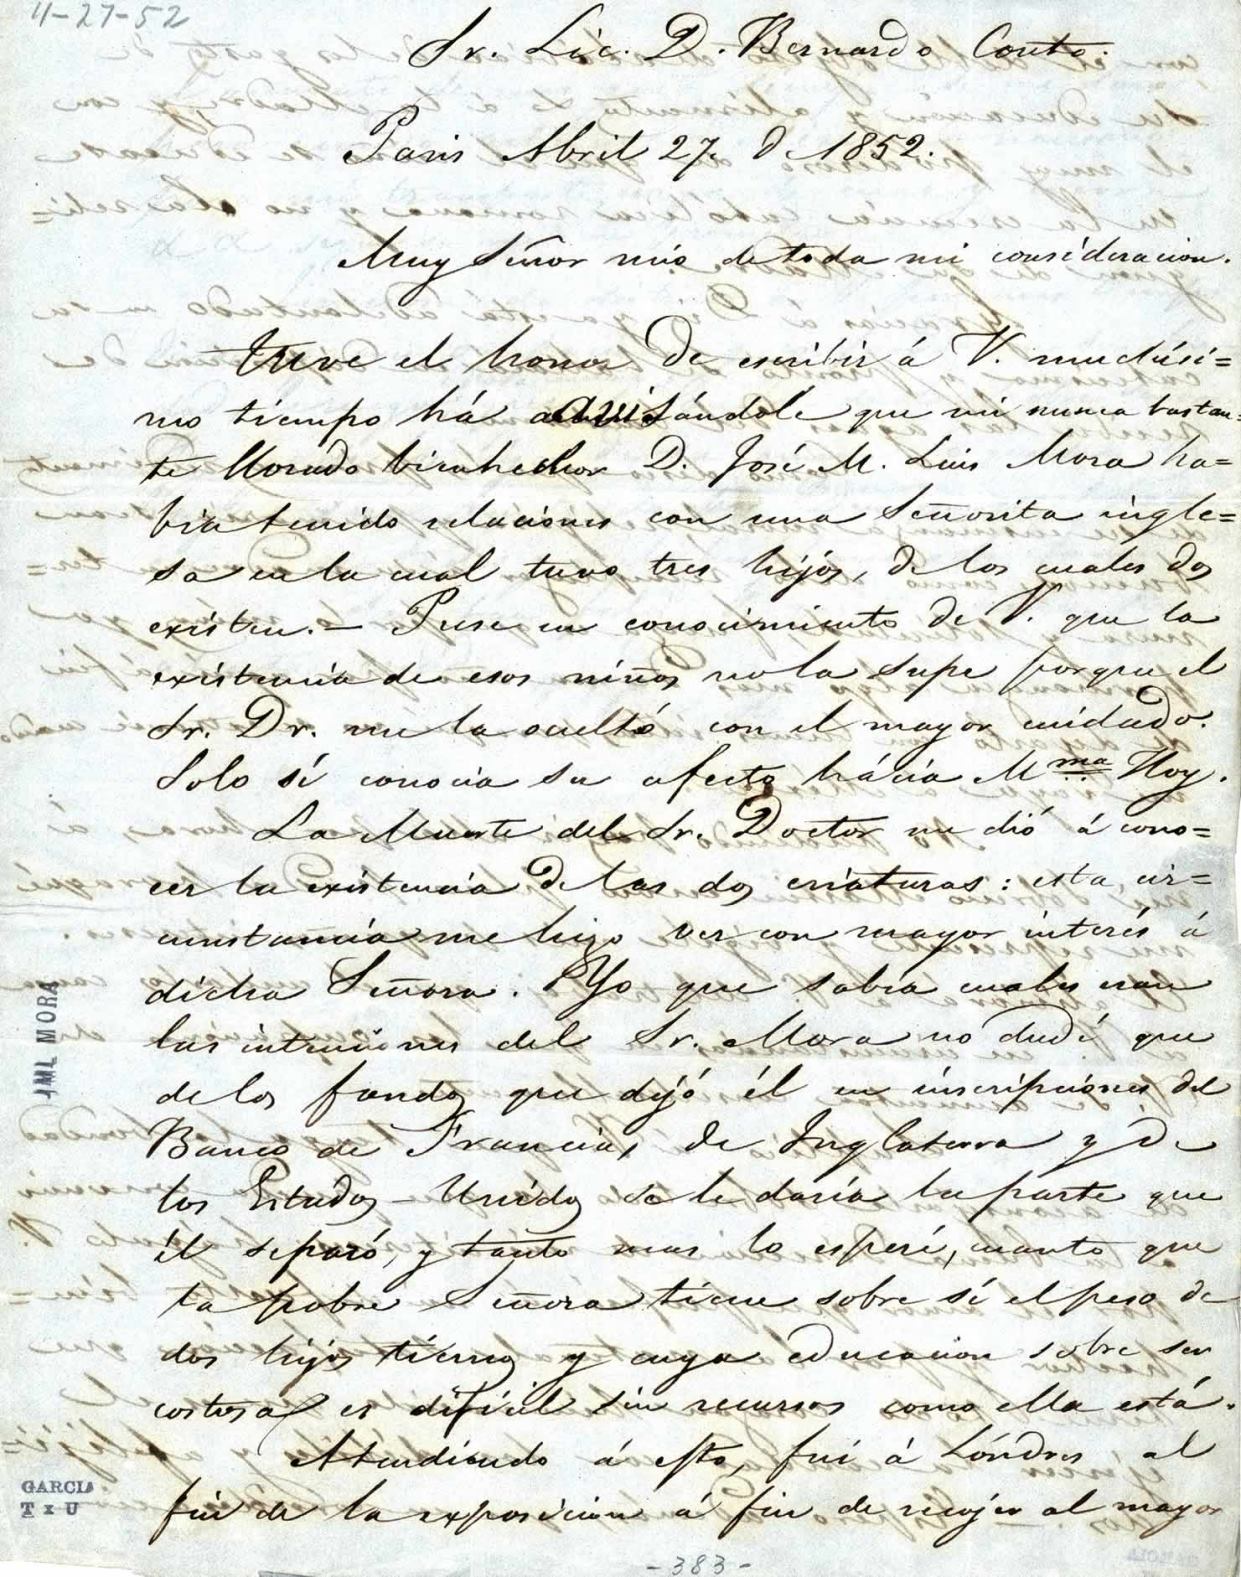 4-27-52
Sr. Lic. D. Bernardo Couto.
Paris Abril 27. de 1852.
Muy Señor mio de toda mi consideracion.
Tuve el honor de escribir á V. muchísi=
mo tiempo há avisándole que mi nunca bastan=
te llorado bienhechor D. José M. Luis Mora ha=
bia tenido relaciones con una Señorita ingle=
sa en la cual tuvo tres hijos, de los cuales dos
existen.- Puse en conocimiento de V. que la
existencia de esos niños no la supe porque el
Sr. Dr. me la ocultó con el mayor cuidado.
Solo sí conocia su afecto hácia Mma Hoy.
La Muerte del Sr. Doctor me dió á cono=
cer la existencia de las dos criaturas: esta cir=
cunstancia me hizo ver con mayor interés á
dicha Señora. Yo que sabia cuales eran
las intenciones del Sr. Mora no dudé que
de los fondos que dejó él en inscripciones del
Banco de Francia, de Inglaterra y de
los Estados-Unidos se le daria la parte que
él separó, y tanto mas lo esperé, cuanto que
la pobre Señora tiene sobre sí el peso de
dos hijos tiernos y cuya educacion sobre ser
costosa es dificil sin recursos como ella está.
Atendiendo á esto, fuí á Lóndres al
fin de la exposicion á fin de recojer al mayor
JML MORA
GARCIA
T x U
-383-